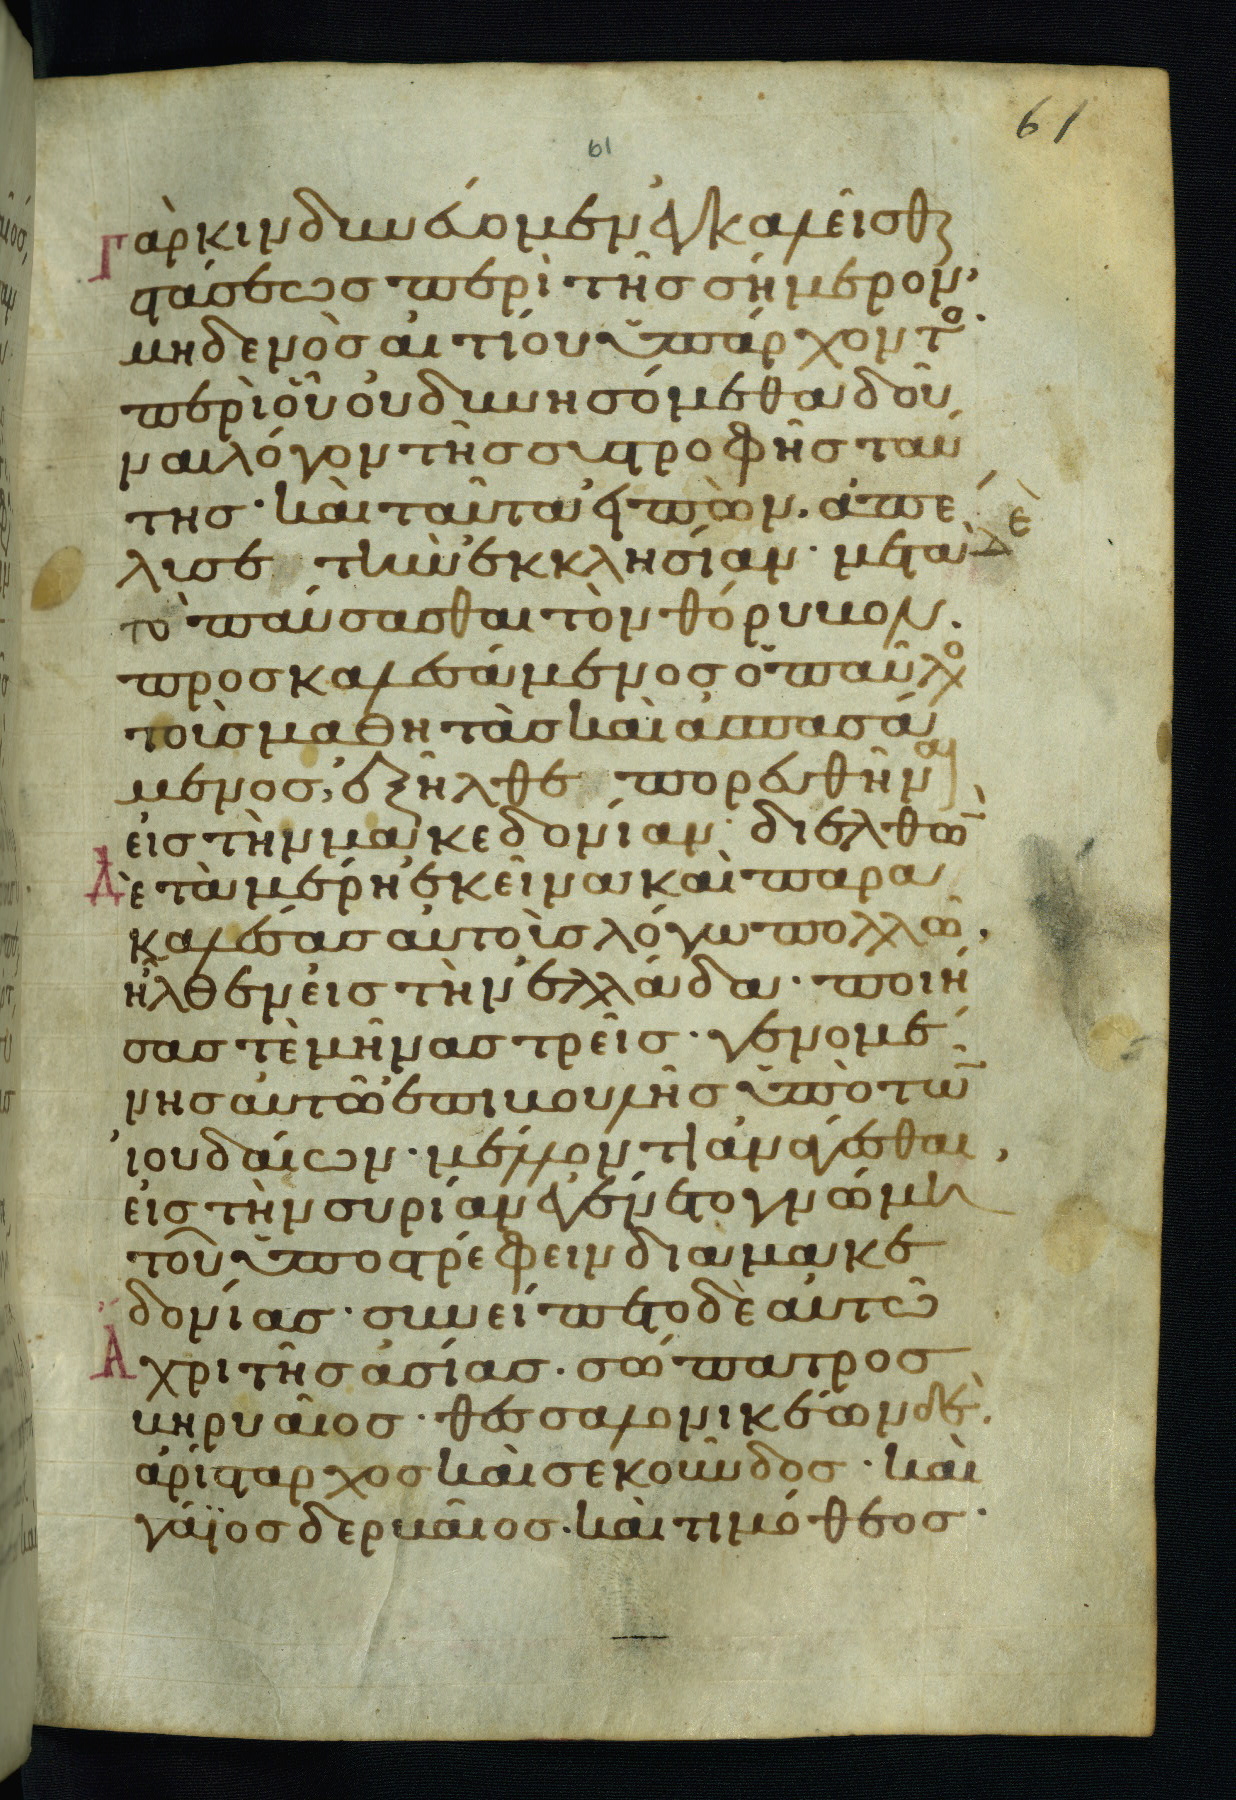 61
61
Γὰρ κινδυνεύομεν ἐγκαλεῖσθαι
στάσεως περὶ τῆς σήμερον,
μηδενὸς αἰτίου ὑπάρχοντο·
περὶ οὗ οὐ δυνησόμεθα δοῦ
ναι λόγον τῆς συστροφῆς ταύ
της· καὶ ταῦτα εἰπὼν. ἀπέ
λυσε τὴν ἐκκλησίαν· μετὰ δὲ
τὸ παύσασθαι τὸν θόρυβον.
προσκαλεσάμενος ὁ παῦλο
τοὺς μαθητὰς καὶ ἀσπασά
μενος, ἐξῆλθε πορευθῆναι
εἰς τὴν μακεδονίαν· διελθὼ
Δὲ τὰ μέρη ἐκεῖνα καὶ παρα
καλέσας αὐτοὺς λόγω πολλῶ,
ἦλθεν εἰς τὴν ἑλλάδα· ποιή
σας τὲ μῆνας τρεῖς· γενομέ
νης αὐτῶ ἐπιβουλῆς ὑπὸ τῶ
ἰουδαίων· μέλλοντι ἀνάγεσθαι,
εἰς τὴν συρίαν ἐγένετο γνώμη
τοῦ ὑποστρέφειν διὰ μακε
δονίας· συνείπετο δὲ αὐτῶ
Ἄχρι τῆς ἀσίας· σώπατρος
βηρυαῖος· θεσσαλονικέων δὲ.
ἀρίσταρχος καὶ σεκοῦνδος· καὶ
γάϊος δερβαῖος· καὶ τιμόθεος·